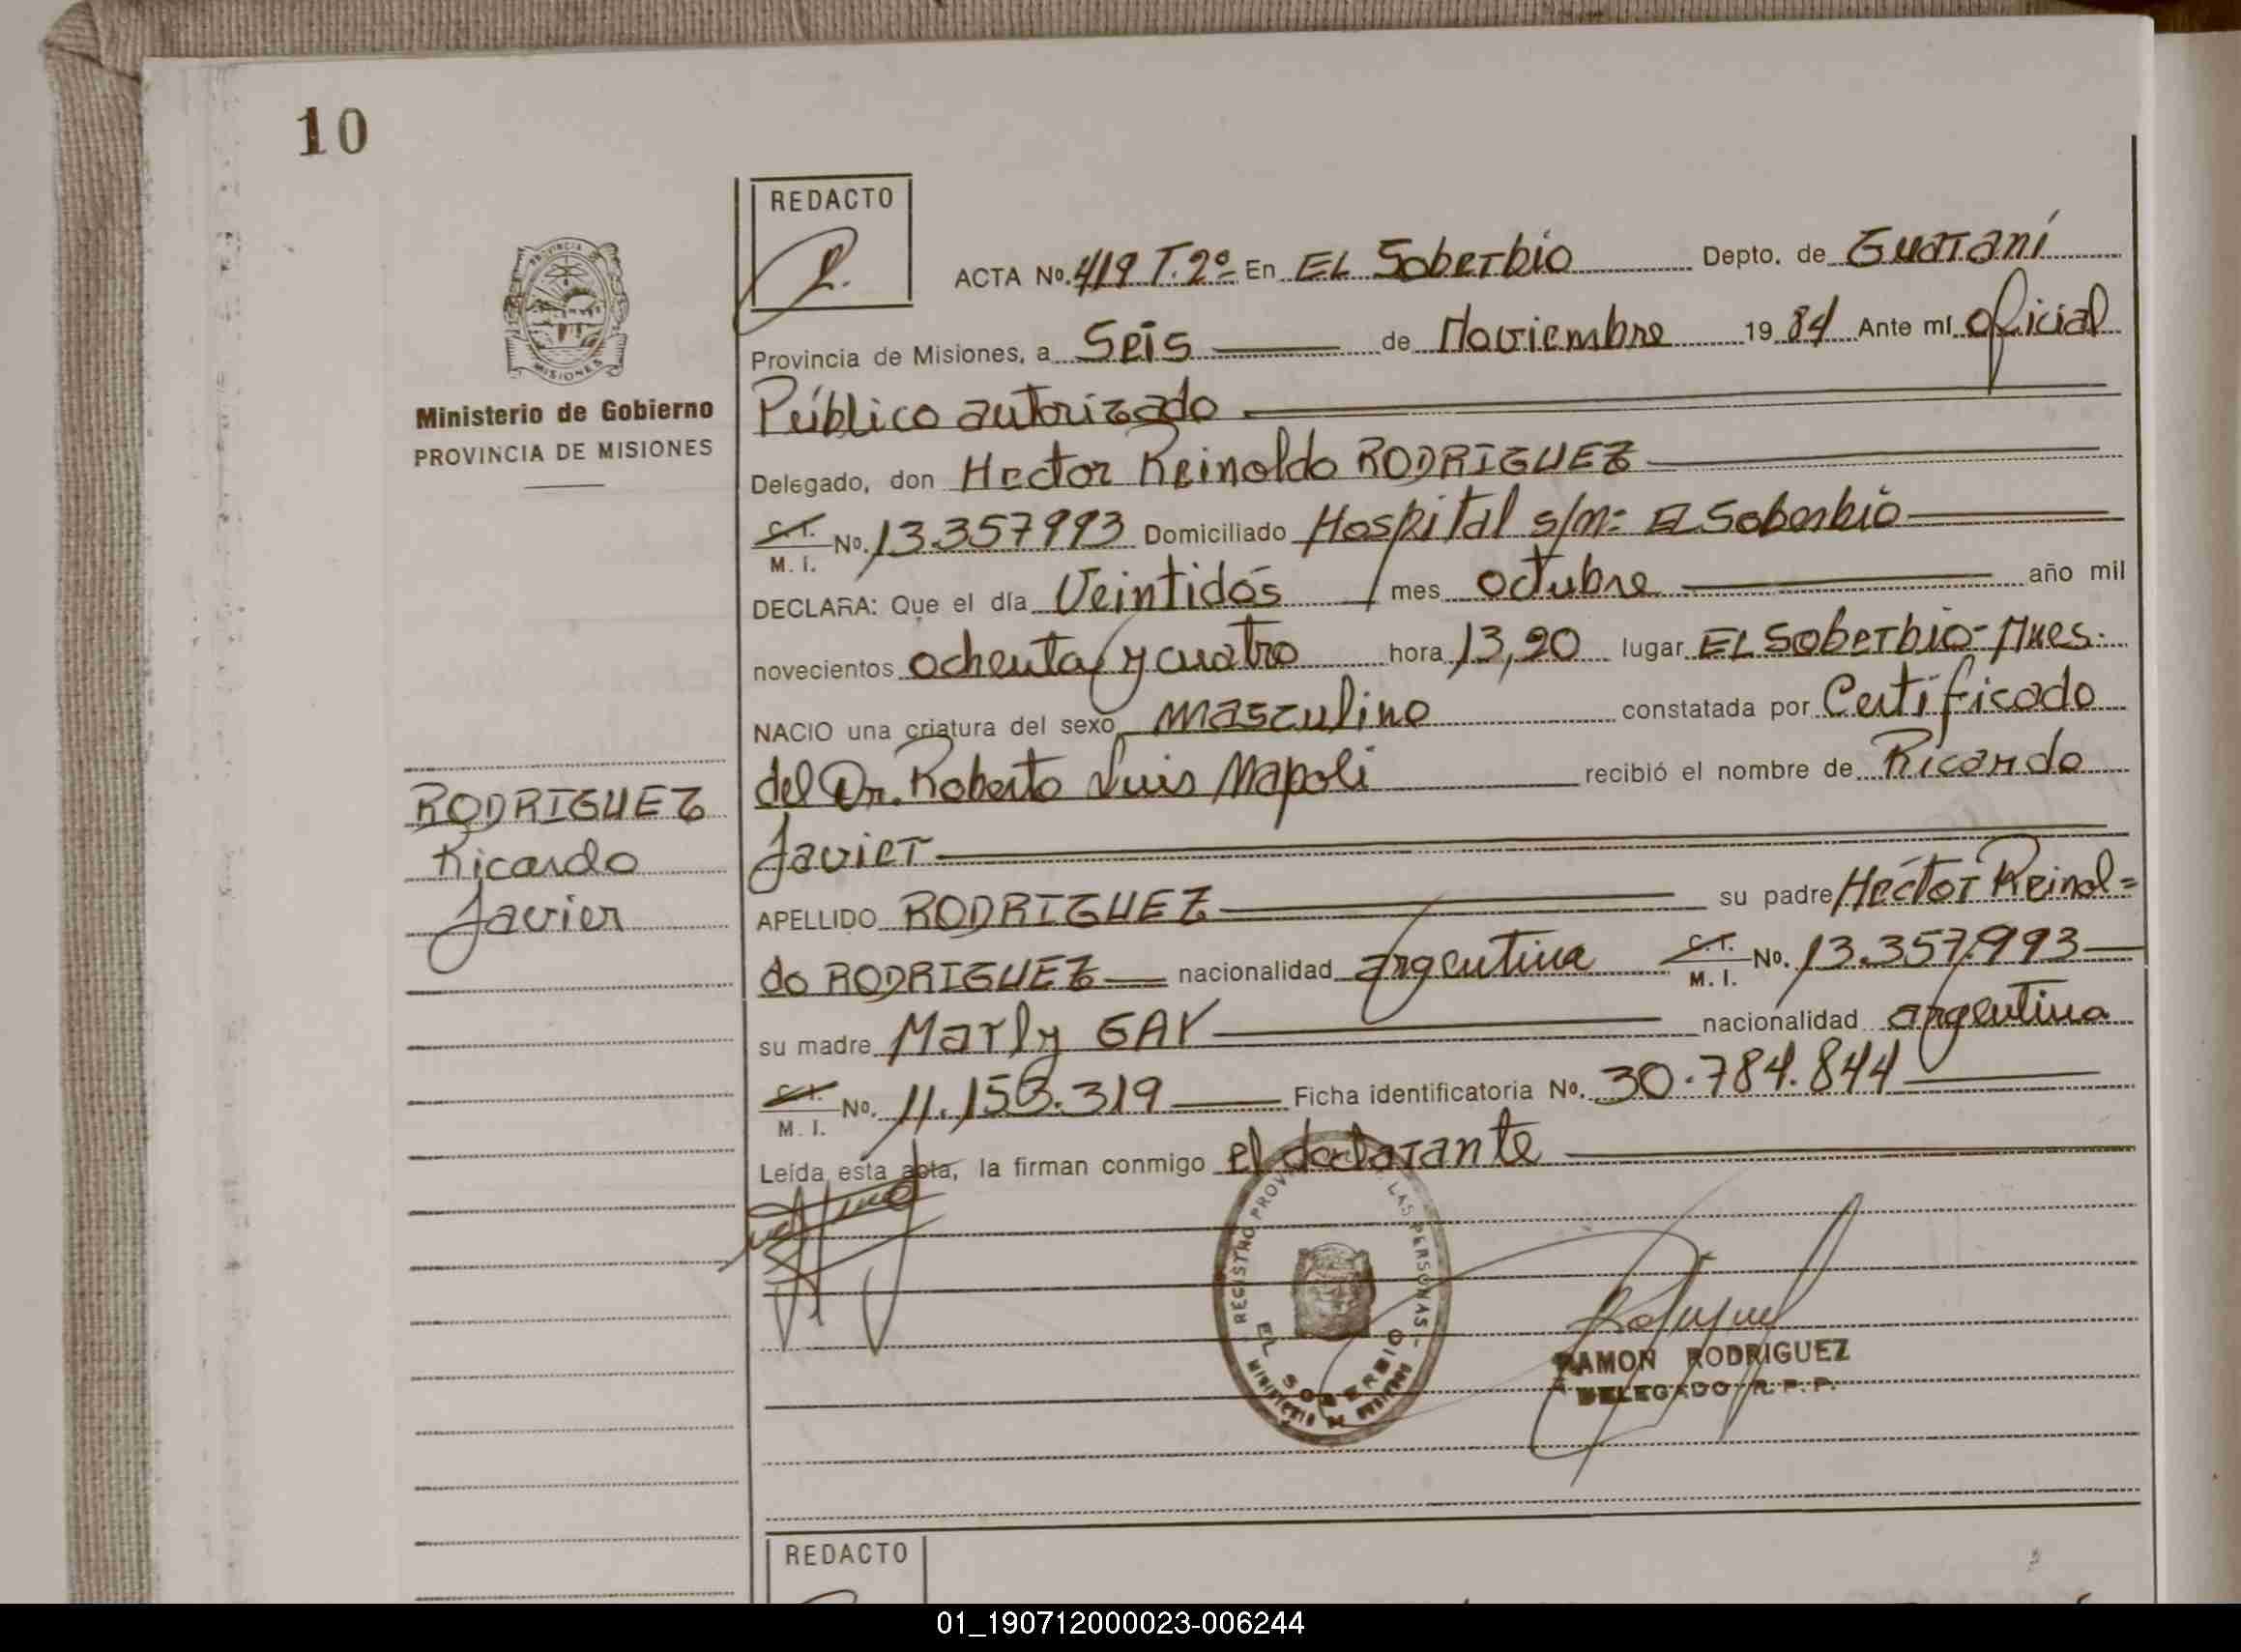 10
REDACTO
ACTA No. 419 T. 2º En EL Soberbio Depto. de Guaraní
Provincia de Misiones, a Seis de Noviembre 1984 Ante mí oficial
Público autorizado
Delegado, don Hector Reinaldo RODRIGUEZ
C. I. M. I. No. 13.357993 Domiciliado Hospital s/n: El Soberbio
DECLARA: Que el día Veintidós mes octubre año mil
novecientos ochenta y cuatro hora 13,20 lugar EL Soberbio-Mnes.
NACIO una criatura del sexo masculino constatada por Certificado
del Dr. Roberto Luis Napoli recibió el nombre de Ricardo
Javier
APELLIDO RODRIGUEZ su padre Héctor Reinal=
do RODRIGUEZ nacionalidad argentina C. I. M. I. No. 13.357.993
su madre Marly GAY nacionalidad argentina
C. I. M. I. No. 11.153.319 Ficha identificatoria No. 30.784.844
Leída esta acta, la firman conmigo el declarante
PROVINCIA
MISIONES
Ministerio de Gobierno
PROVINCIA DE MISIONES
RODRIGUEZ
Ricardo
Javier
REGISTRO PROV LAS PERSONAS
EL SOBERBIO
MINISTERIO DE GOBIERNO
RAMON RODRIGUEZ
DELEGADO R. P. P.
REDACTO
01_190712000023-006244